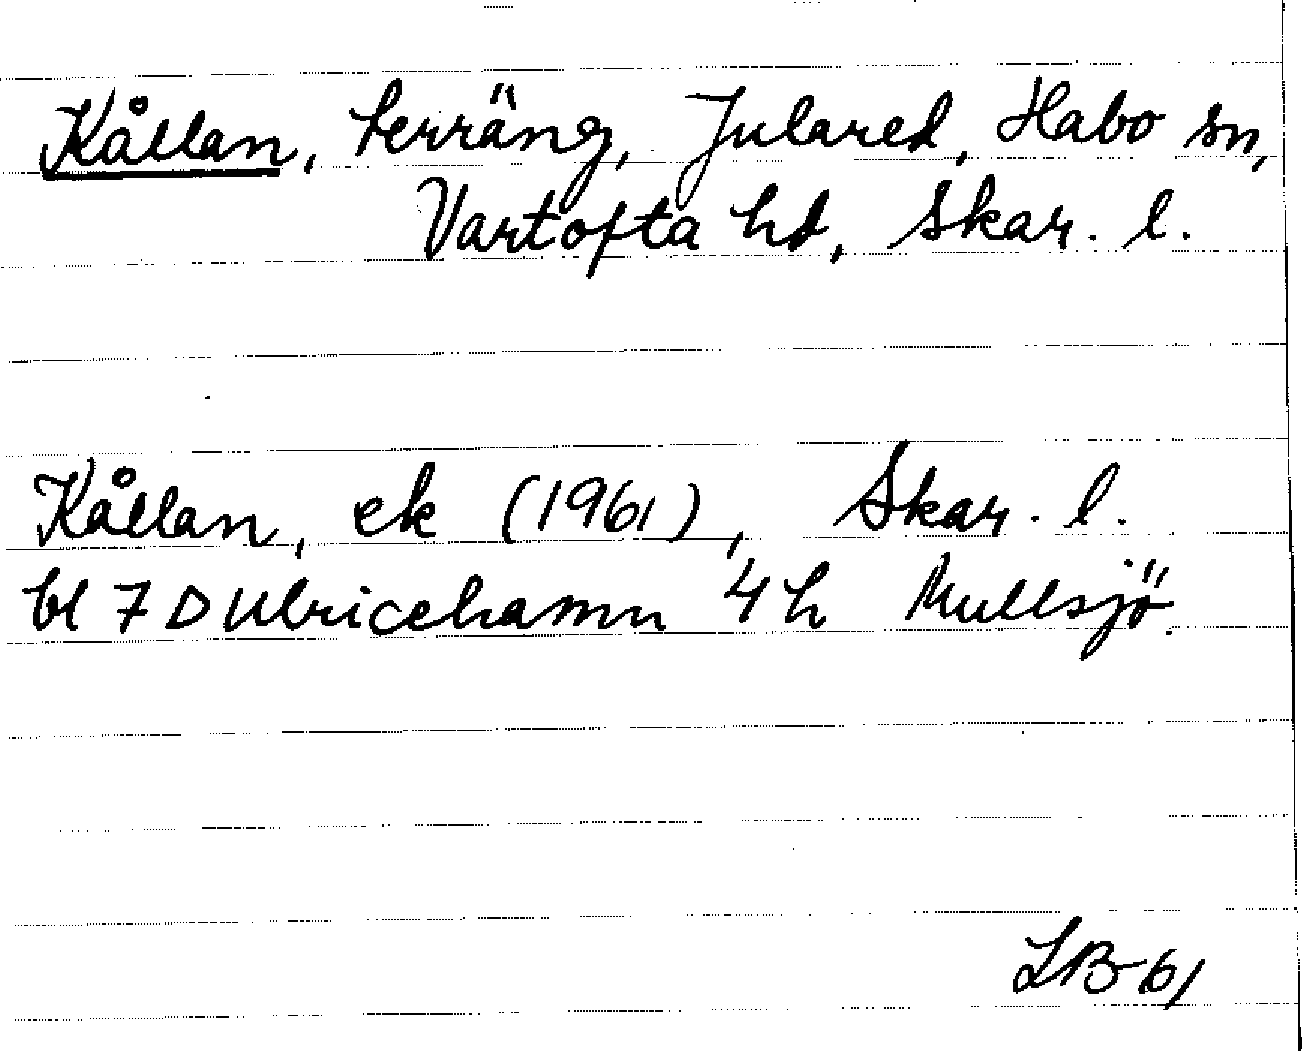 Kållan, terräng, Julared, Habo sn,
Vartofta hd, Skar. l.
Kållan, ek (1961), Skar. l.
bl 7 D Ulricehamn 4 h Mullsjö.
LB-61